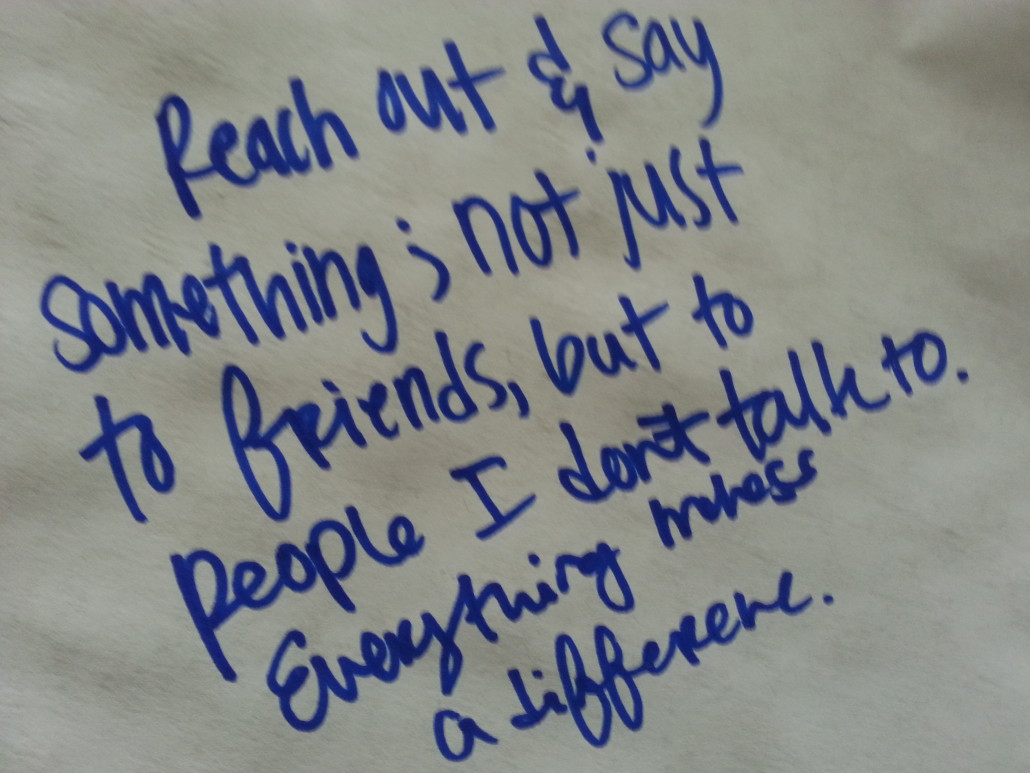 Reach out & say
something; not just
to friends, but to
people I don't talk to.
Everything makes
a difference.